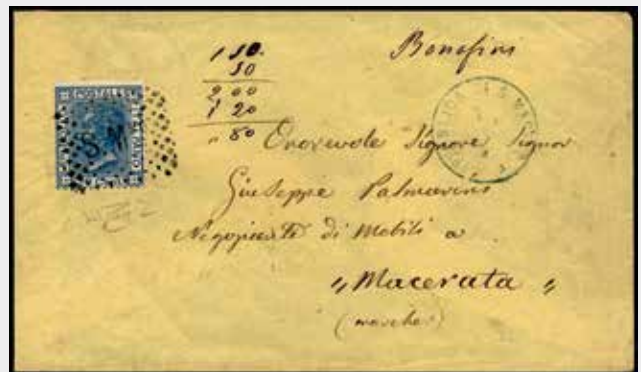 Bonafini
1 50.
50
2 00
1 20
" 80
POSTALE
S M
Onorevole Signore Signor
Giuseppe Palmarini
Negoziante di Mobili a
" Macerata "
(marche)